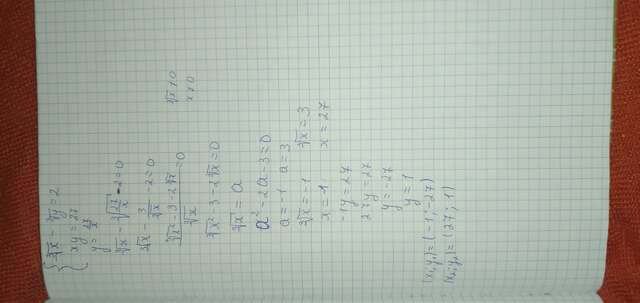 { ∛x - ∛y = 2
xy = 27
y = 27/x
∛x - ∛(27/x) - 2 = 0
∛x - 3/∛x - 2 = 0
(∛x² - 3 - 2∛x)/∛x = 0
∛x ≠ 0
x ≠ 0
∛x² - 3 - 2∛x = 0
∛x = a
a² - 2a - 3 = 0
a = -1 a = 3
∛x = -1 ∛x = 3
x = -1 x = 27
-1y = 27
27y = 27
y = -27
y = 1
(x₁; y₁) = (-1; -27)
(x₂; y₂) = (27; 1)